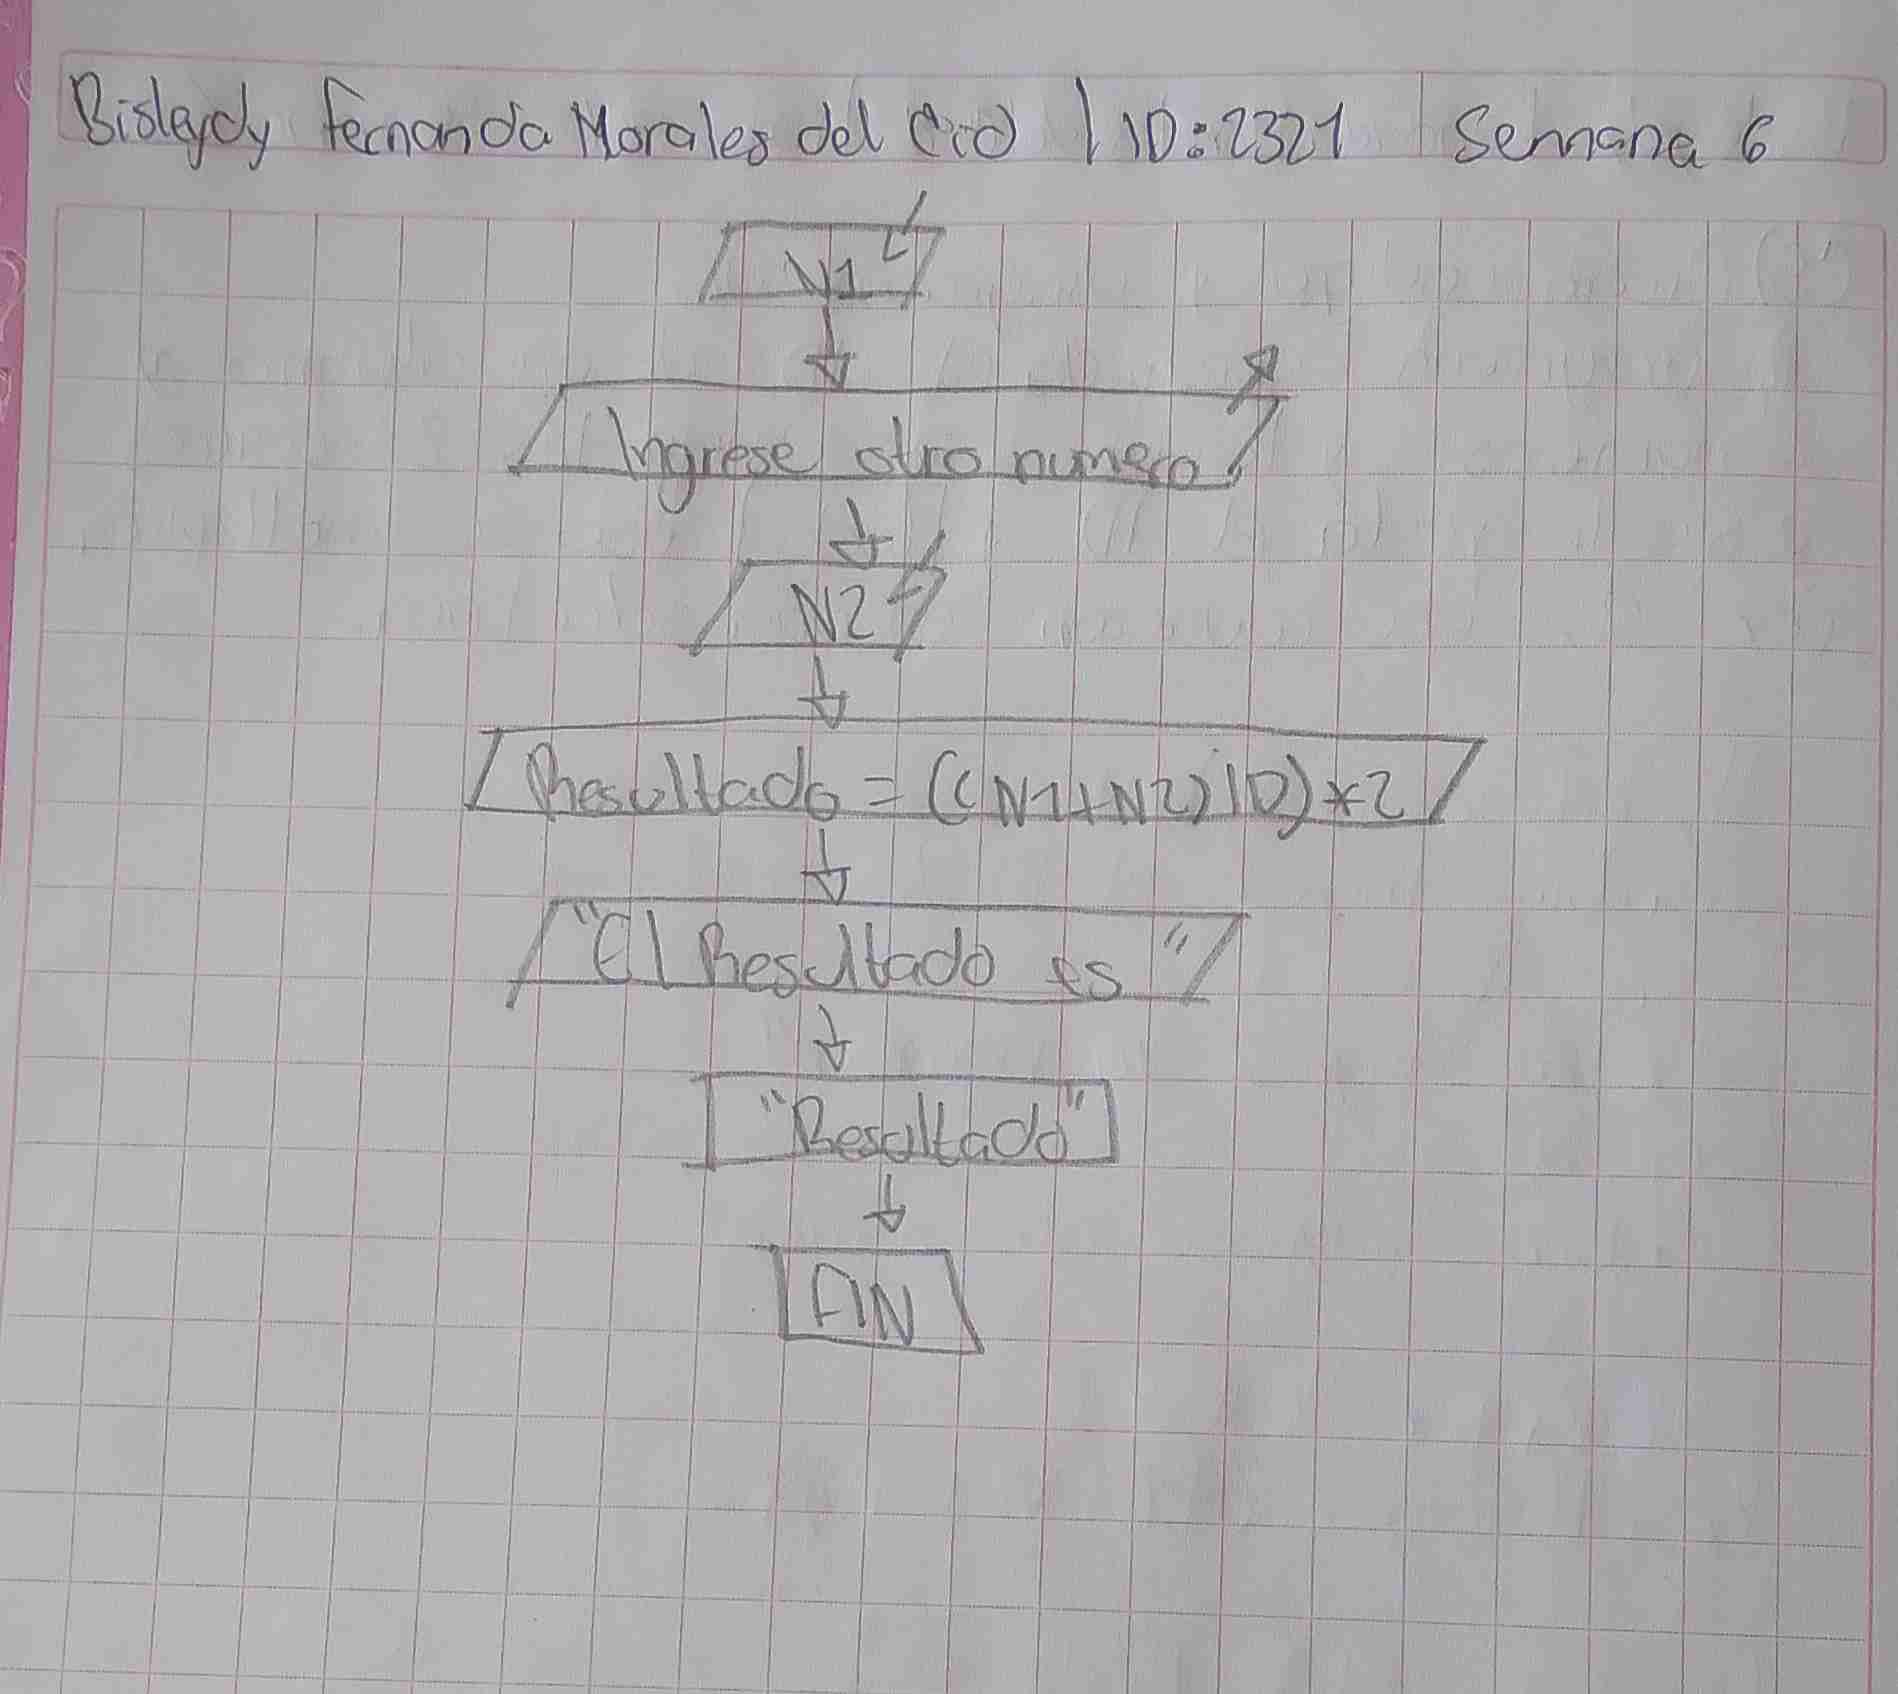 Bisleydy Fernanda Morales del Cid | ID:2321 Semana 6
N1
Ingrese otro numero
N2
Resultado = ((N1+N2)/D)*2
"El Resultado es "
"Resultado"
FIN